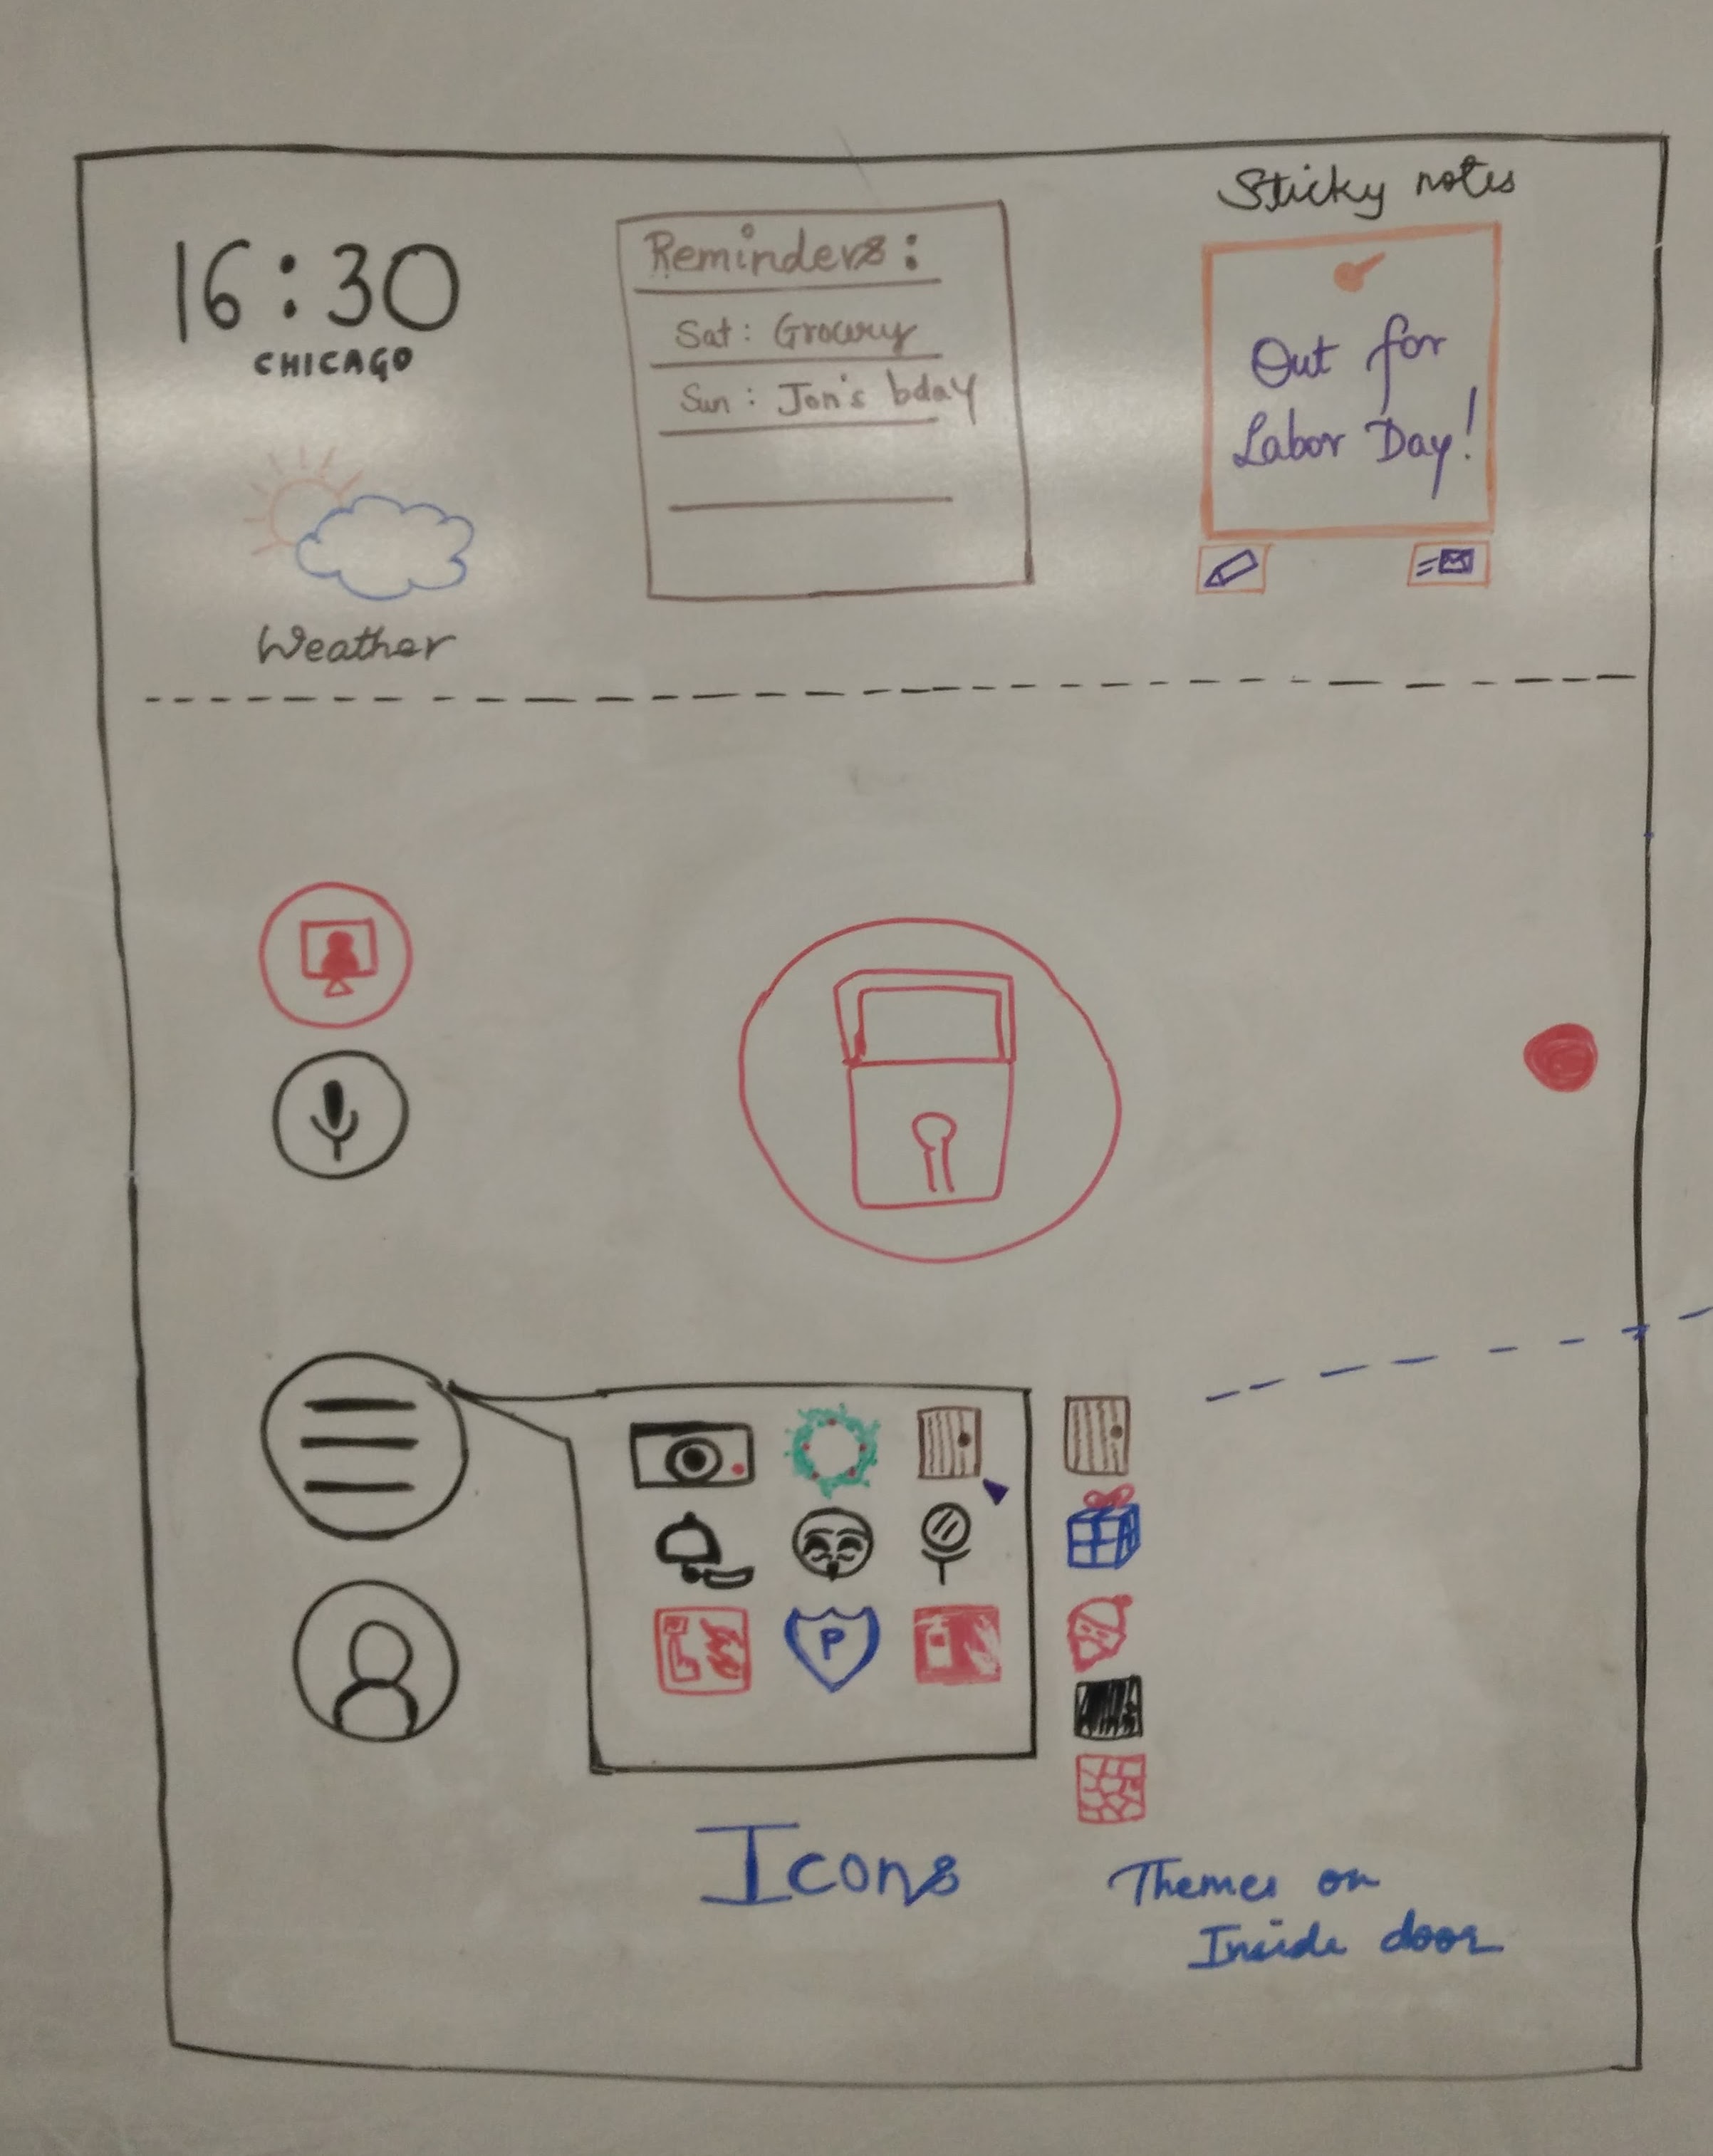 16:30
CHICAGO
Weather
Reminders:
Sat: Grocery
Sun: Jon's bday
Sticky notes
Out for
Labor Day!
P
Icons
Themes on
Inside door